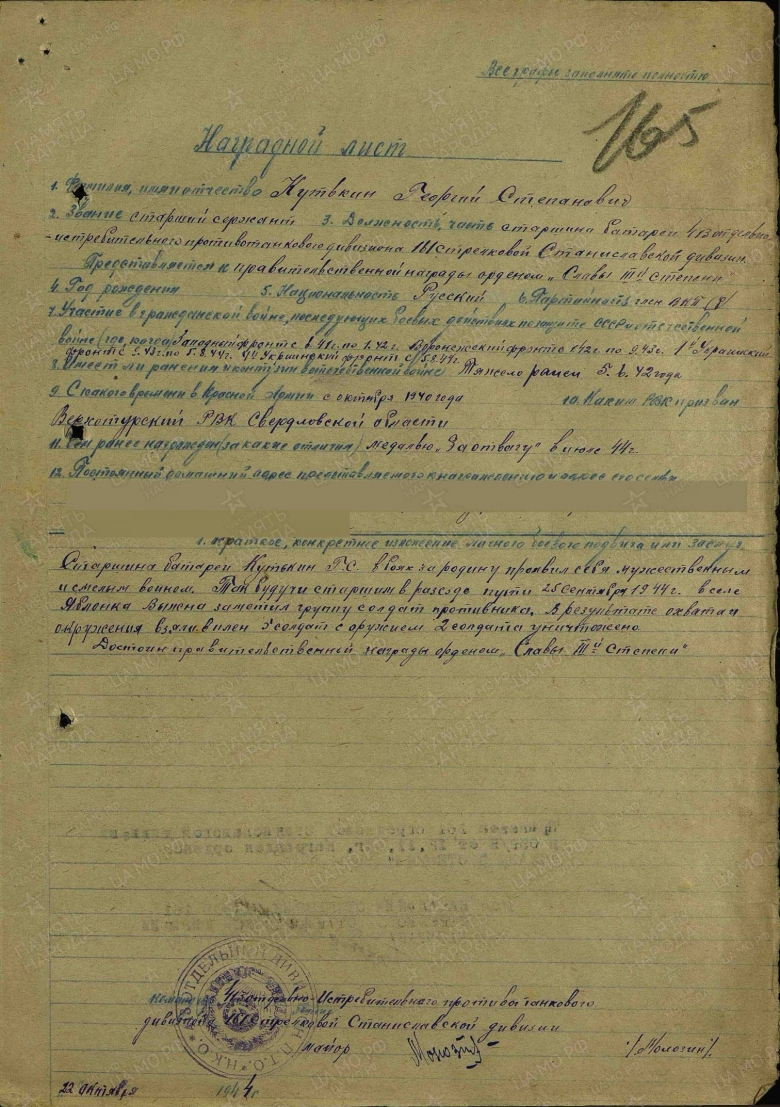 Все графы заполнять полностью
165
Наградной лист
1. Фамилия, имя и отчество Кутькин Георгий Степанович
2. Звание старший сержант 3. Должность, часть старшина батареи 413 отдельно
-истребительного противотанкового дивизиона 161 стрелковой Станиславской дивизии.
Представляется к правительственной награды орденом „Славы III й степени"
4. Год рождения 5. Национальность Русский 6. Партийность член ВКП(б)
7. Участие в гражданской войне, последующих боевых действиях по защите СССР и отечественной
войне (где, когда) Западной фронт с 8.41г. по 1.42г. Воронежский фронт с 1.42г. по 9.43г. 1й Украинский
фронт с 9.43г. по 5.8.44г. 4й Украинский фронт с 5.8.44г.
8. Имеет ли ранения и контузии в отечественной войне Тяжело ранен 5.6.42 года
9. С какого времени в Красной Армии с октября 1940 года 10. Каким РВК призван
Верхотурский РВК Свердловской области
11. Чем ранее награжден (за какие отличия) медалью „За отвагу" в июле 44г.
12. Постоянный домашний адрес представляемого к награждению и адрес его семьи
1. краткое, конкретное изложение личного боевого подвига или заслуг.
Старшина батареи Кутькин Г.С. в боях за родину проявил себя мужественным
и смелым воином. Так будучи старшим в разъезде пути 25 сентября 1944г. в селе
Яблонка Выжна заметил группу солдат противника. В результате охвата и
окружения взяли в плен 5 солдат с оружием 2 солдата уничтожено.
Достоин правительственной награды орденом „Славы III й степени"
Командир 413 отдельно-Истребительного противотанкового
дивизион 161 Стрелковой Станиславской дивизии
майор /Молозин/.
22 октября 1944г